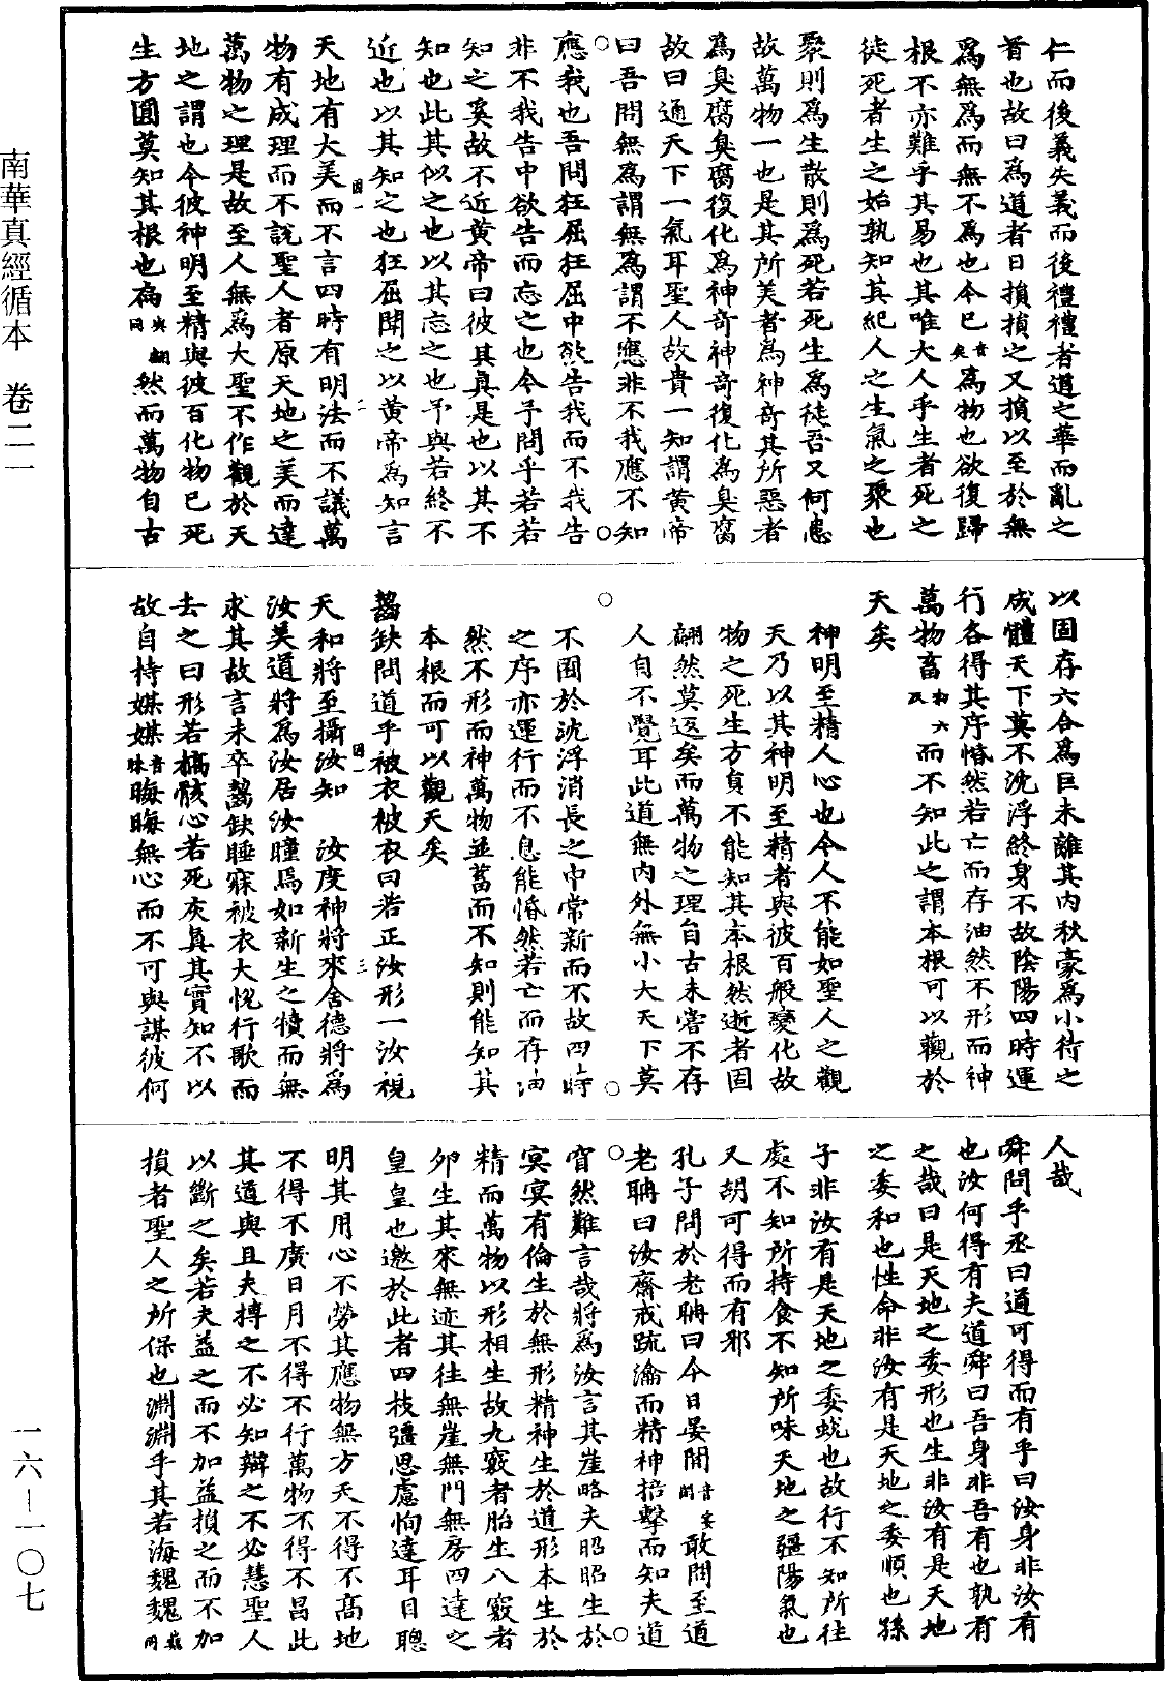 仁而後義失義而後禮禮者道之華而亂之
首也故曰為道者日損損之又損以至於無
為無為而無不為也今已音矣為物也欲復歸
根不亦難乎其易也其唯大人乎生者死之
徒死者生之始孰知其紀人之生氣之聚也
聚則為生散則為死若死生為徒吾又何患
故萬物一也是其所美者為神奇其所惡者
為臭腐臭腐復化為神奇神奇復化為臭腐
故曰通天下一氣耳聖人故貴一知謂黃帝
曰吾問無為謂無為謂不應非不我應不知
應我也吾問狂屈狂屈中欲告我而不我告
非不我告中欲告而忘之也今予問乎若若
知之奚故不近黃帝曰彼其真是也以其不
知也此其似之也以其忘之也予與若終不
近也以其知之也狂屈聞之以黃帝為知言
天地有大美而不言四時有明法而不議萬
物有成理而不說聖人者原天地之美而達
萬物之理是故至人無為大聖不作觀於天
地之謂也今彼神明至精與彼百化物已死
生方圓莫知其根也扁與翩同然而萬物自古
以固存六合為巨未離其內秋豪為小待之
成體天下莫不沈浮終身不故陰陽四時運
行各得其序惛然若亡而存油然不形而神
萬物畜勑六反而不知此之謂本根可以觀於
天矣
神明至精人心也今人不能如聖人之觀
天乃以其神明至精者與彼百般變化故
物之死生方負不能知其本根然逝者固
翩然莫返矣而萬物之理自古未嘗不存
人自不覺耳此道無內外無小大天下莫
不囿於沈浮消長之中常新而不故四時
之序亦運行而不息能惛然若亡而存油
然不形而神萬物並蓄而不知則能知其
本根而可以觀天矣
齧缺問道乎被衣被衣曰若正汝形一汝視
天和將至攝汝知 汝度神將來舍德將為
汝美道將為汝居汝瞳焉如新生之犢而無
求其故言未卒齧缺睡寐被衣大悅行歌而
去之曰形若槁骸心若死灰真其實知不以
故自持媒媒音昧晦晦無心而不可與謀彼何
人哉
舜問乎丞曰道可得而有乎曰汝身非汝有
也汝何得有夫道舜曰吾身非吾有也孰有
之哉曰是天地之委形也生非汝有是天地
之委和也性命非汝有是天地之委順也孫
子非汝有是天地之委蛻也故行不知所往
處不知所持食不知所味天地之彊陽氣也
又胡可得而有邪
孔子問於老聃曰今日晏閒音閑敢問至道
老聃曰汝齋戒疏瀹而精神掊擊而知夫道
窅然難言哉將為汝言其崖略夫昭昭生於
冥冥有倫生於無形精神生於道形本生於
精而萬物以形相生故九竅者胎生八竅者
卵生其來無迹其往無崖無門無房四達之
皇皇也邀於此者四枝彊思慮恂達耳目聰
明其用心不勞其應物無方天不得不高地
不得不廣日月不得不行萬物不得不昌此
其道與且夫摶之不必知辯之不必慧聖人
以斷之矣若夫益之而不加益損之而不加
損者聖人之所保也淵淵乎其若海魏魏巍同
南華真經循本 卷二一
一六—一〇七